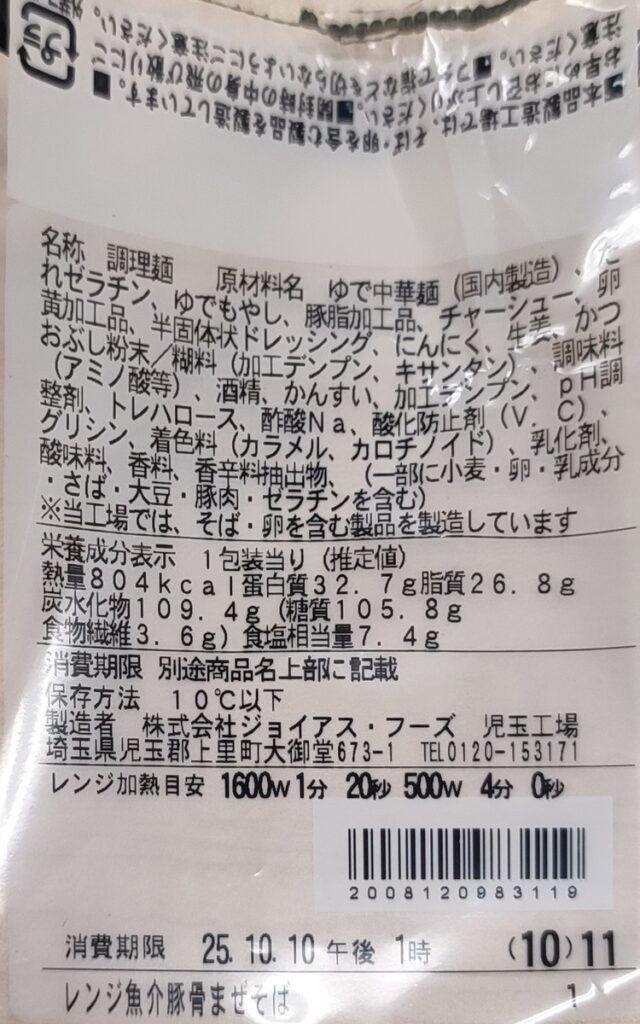 プラ
外装フ
■本品製造工場では、そば・卵を含む製品を製造しています。
お早めにお召し上がりください。■開封時の中身の飛び散りにご
注意ください。■フチで指などを切らないようにご注意ください。
名称 調理麺 原材料名 ゆで中華麺(国内製造)、た
れゼラチン、ゆでもやし、豚脂加工品、チャーシュー、卵
黄加工品、半固体状ドレッシング、にんにく、生姜、かつ
おぶし粉末/糊料(加工デンプン、キサンタン)、調味料
(アミノ酸等)、酒精、かんすい、加工デンプン、pH調
整剤、トレハロース、酢酸Na、酸化防止剤(V.C)、
グリシン、着色料(カラメル、カロチノイド)、乳化剤、
酸味料、香料、香辛料抽出物、(一部に小麦・卵・乳成分
・さば・大豆・豚肉・ゼラチンを含む)
※当工場では、そば・卵を含む製品を製造しています
栄養成分表示 1包装当り(推定値)
熱量804kcal蛋白質32.7g脂質26.8g
炭水化物109.4g(糖質105.8g
食物繊維3.6g)食塩相当量7.4g
消費期限 別途商品名上部に記載
保存方法 10℃以下
製造者 株式会社ジョイアス・フーズ 児玉工場
埼玉県児玉郡上里町大御堂673-1 TEL0120-153171
レンジ加熱目安 1600W 1分 20秒 500W 4分 0秒
2008120983119
消費期限 25.10.10 午後 1時 (10)11
レンジ魚介豚骨まぜそば 1